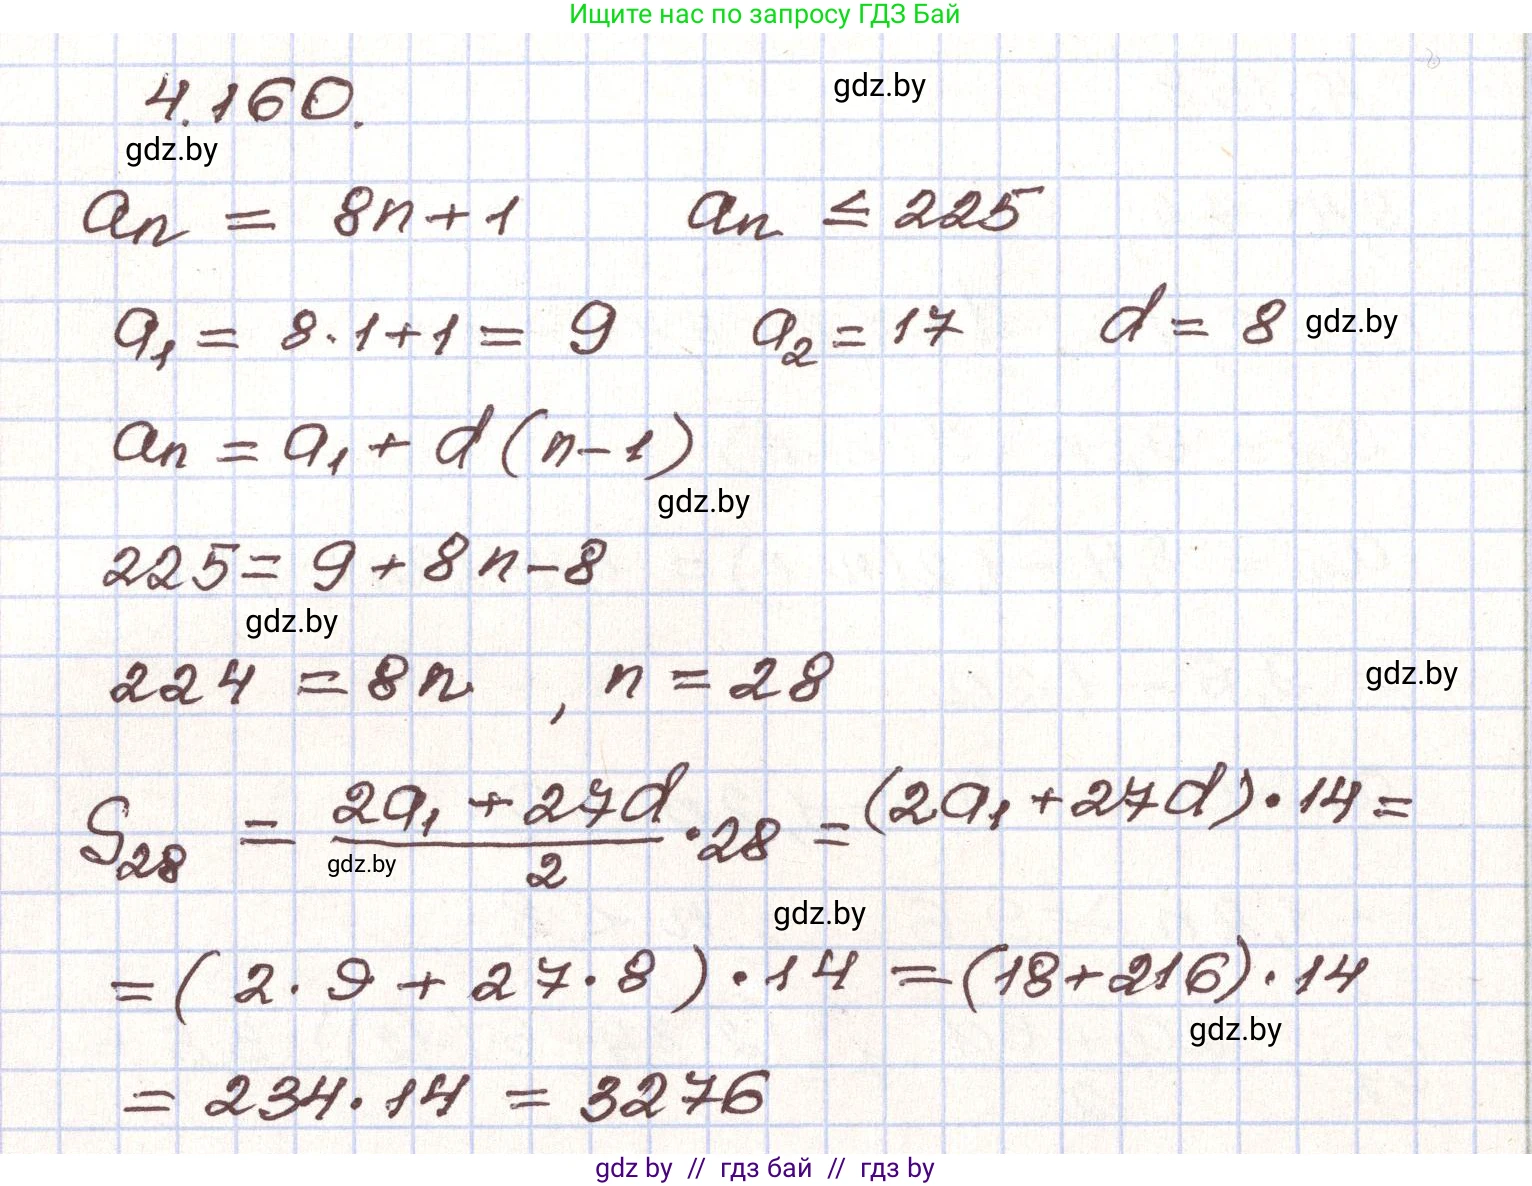 Ищите нас по запросу ГДЗ Бай
4.160.
gdz.by
gdz.by
aₙ = 8n + 1 aₙ ≤ 225
a₁ = 8 · 1 + 1 = 9 a₂ = 17 d = 8
gdz.by
aₙ = a₁ + d (n - 1)
gdz.by
225 = 9 + 8n - 8
gdz.by
224 = 8n , n = 28
gdz.by
S₂₈ = (2a₁ + 27d)/2 · 28 = (2a₁ + 27d) · 14 =
gdz.by
gdz.by
= (2 · 9 + 27 · 8) · 14 = (18 + 216) · 14
gdz.by
= 234 · 14 = 3276
gdz by // гдз бай // гдз by